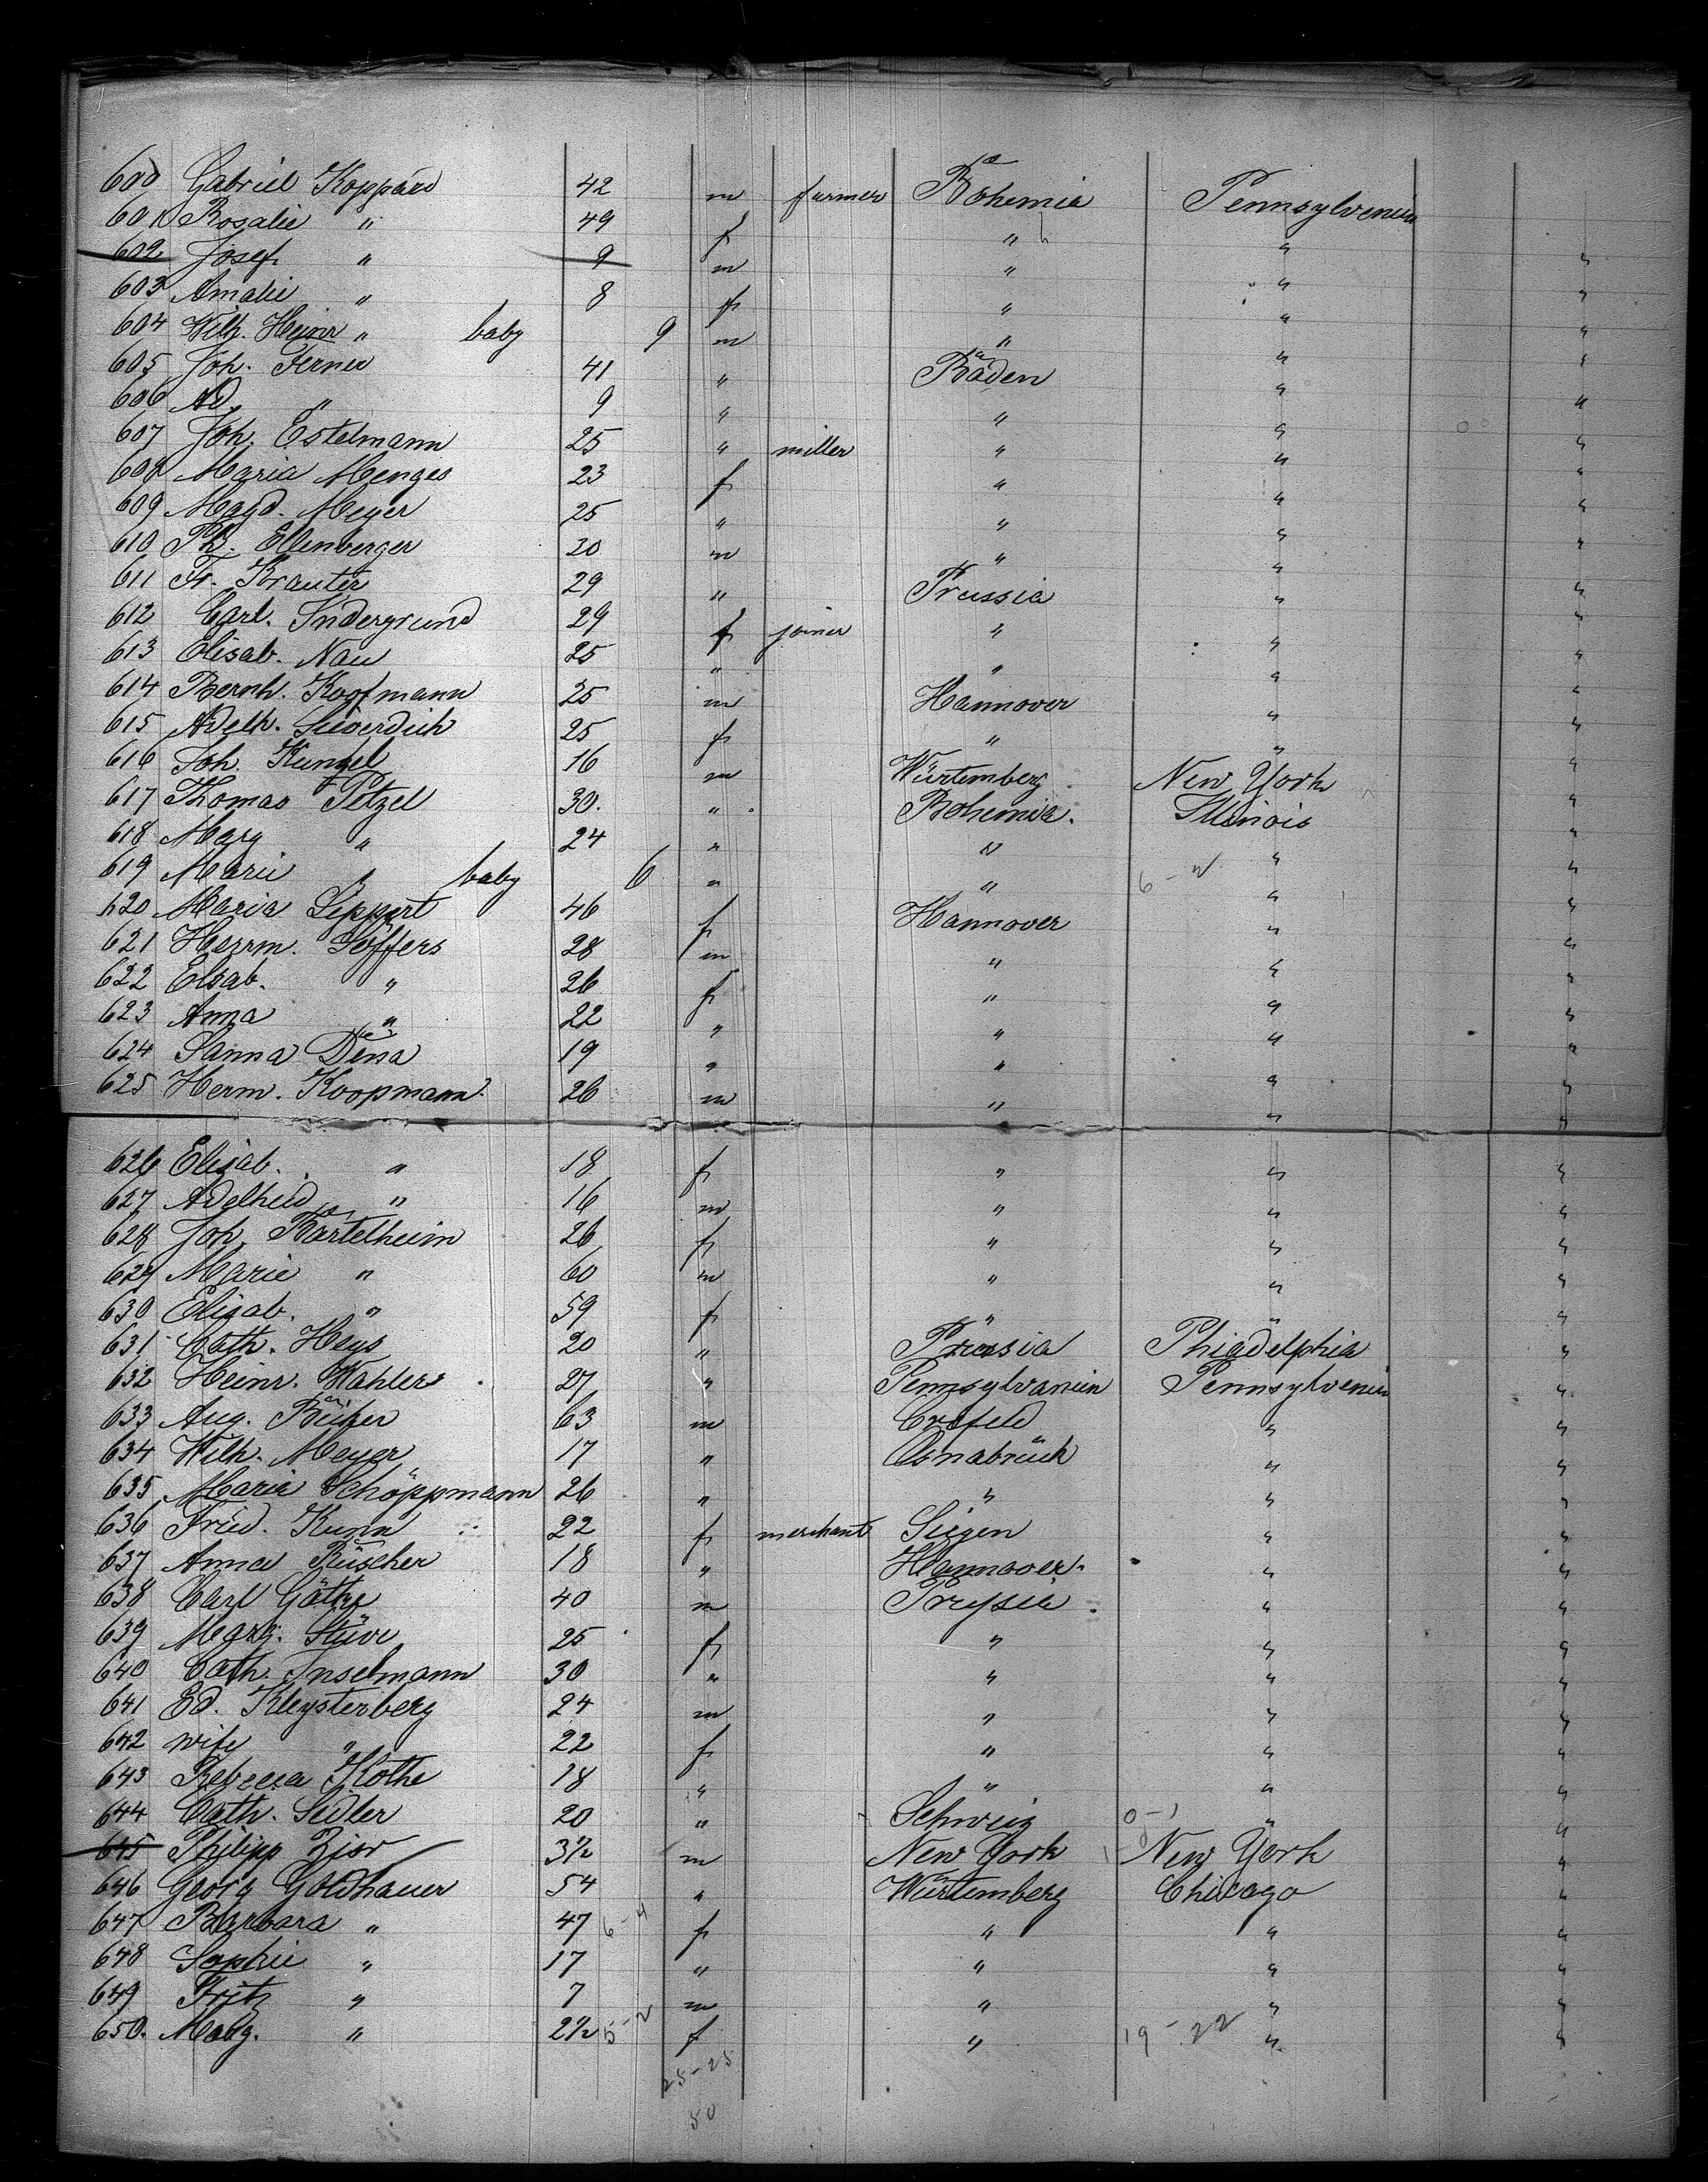 600 Gabriel Koppard 42 m farmer Bohemia Pennsylvenien
601 Rosalie " 49 f " "
602 Josef " 9 m " " "
603 Amalie " 8 f " " "
604 Wilh. Heinr " baby 9 m " " "
605 Joh. Ferner 41 " Baden " "
606 Ad. " 9 " " " "
607 Joh. Estelmann 25 " miller " " "
608 Maria Menges 23 f " " "
609 Magd. Meyer 25 " " " "
610 Ph. Ellenberger 30 m " " "
611 Fr. Krauter 29 " Prussia " "
612 Carl. Indergrund 29 f joiner " " "
613 Elisab. Nau 25 " " " "
614 Bernh. Koofmann 25 m Hannover " "
615 Adelh. Sieverdich 25 f " " "
616 Joh. Kunzel 16 m Würtemberg New York "
617 Thomas Petzel 30. " Bohemia. Illinois "
618 Mary " 24 " " " "
619 Marie " baby 6 " " 6 - " "
620 Maria Seppert 46 f Hannover " "
621 Herrm. Söffers 28 m " " "
622 Elsab. " 26 f " " "
623 Anna " 22 " " " "
624 Sanna Dena 19 " " " "
625 Herm. Koopmann. 26 m " " "
626 Elisab. " 18 f " " "
627 Adelheid " 16 m " " "
628 Joh. Bartelheim 26 f " " "
629 Marie " 60 m " " "
630 Elisab. " 59 f " " "
631 Cath. Heys 20 " Prussia Phiadelphia "
632 Heinr. Wahlers 27 " Pennsylvanien Pennsylvenien "
633 Aug. Büker 63 m Crefeld " "
634 Wilh. Meyer 17 " Osnabrück " "
635 Maria Schöppmann 26 " " " "
636 Fried. Kunn 22 f merchant Siegen " "
637 Anna Büscher 18 " Hannover. " "
638 Carl Göthe 40 m Prussia. " "
639 Marg. Stüve 25 f " " "
640 Cath. Inselmann 30 " " " "
641 Ed. Kleysterberg 24 m " " "
642 wife " 22 f " " "
643 Rebecca Kothe 18 " " " "
644 Cath. Sedler 20 " Schweiz 0 - 1 " "
645 Philipp Zisv 3½ m New York New York "
646 Georg Goldhauer 54 " Würtemberg Chicago "
647 Barbara " 47 6 - 4 f " " "
648 Sophie " 17 " " " "
649 Fritz " 7 m " " "
650. Marg. " 2½ 5 - 2 f " 19 - 22 " "
25 - 25
50